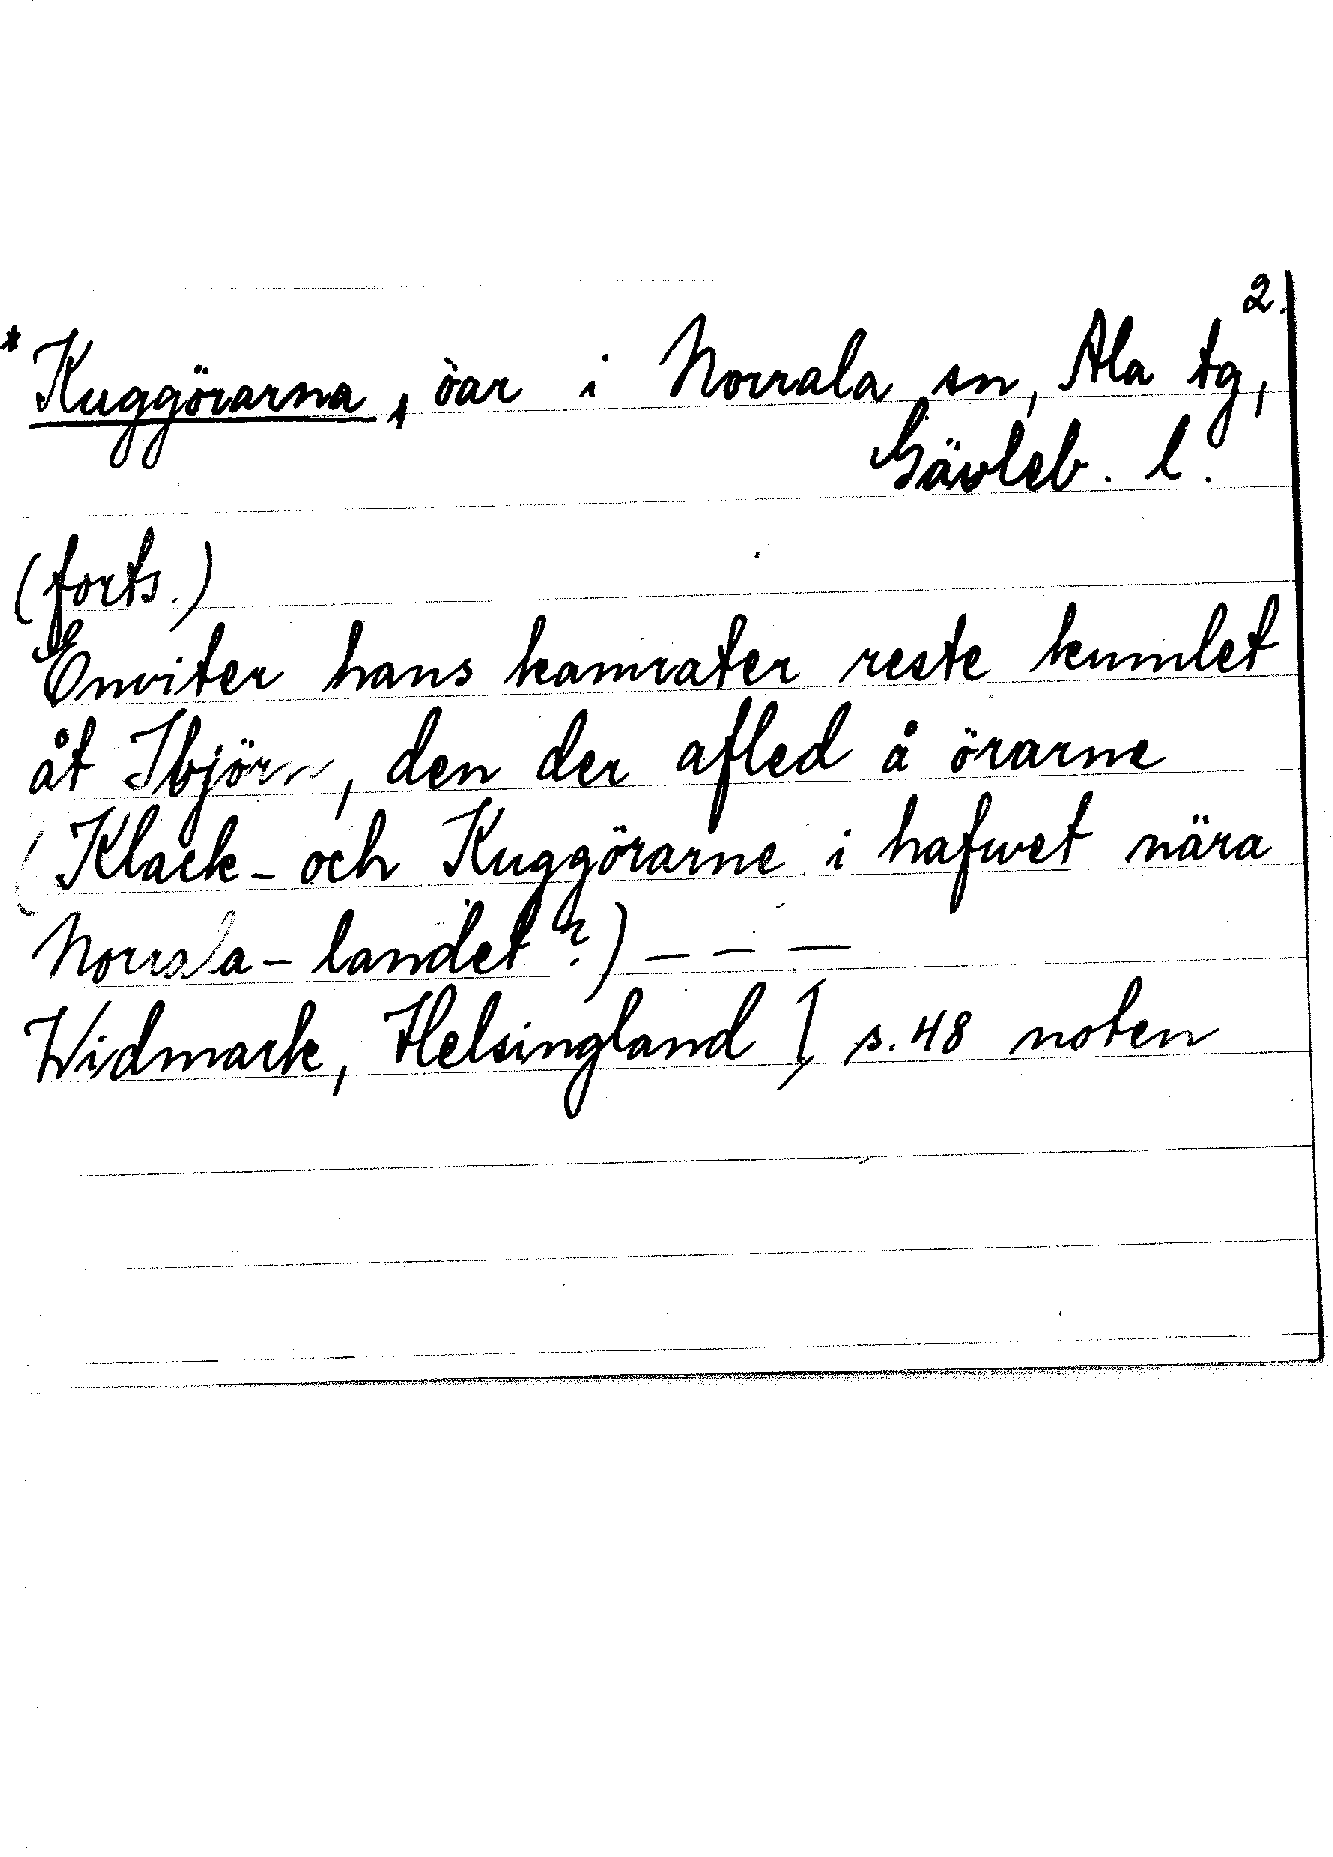 2.
* Kuggörarna, öar i Norrala sn, Ala tg,
Gävleb. l.
(forts.)
Enviter hans kamrater reste kumlet
åt Ibjörn, den der afled å örarne
(Klack- och Kuggörarne i hafwet nära
Norrala-landet?) – – –
Widmark, Helsingland I s. 48 noten